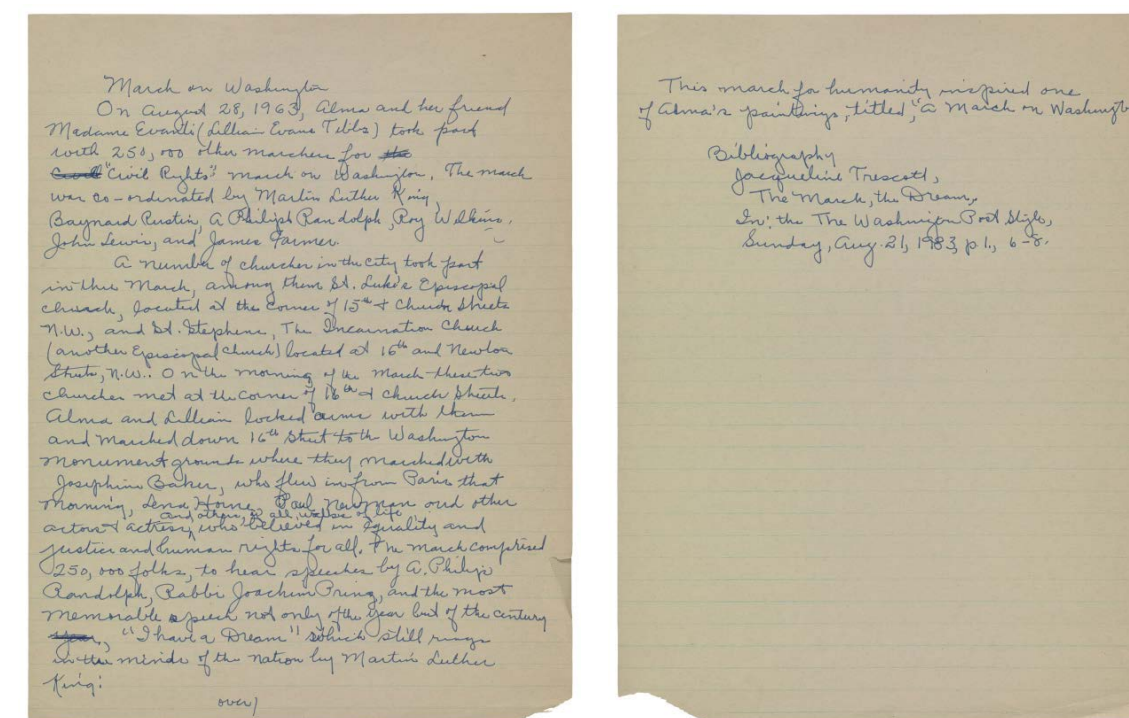 March on Washington
On August 28, 1963, Alma and her friend
Madame Evanti (Lillian Evans Tibbs) took part
with 250,000 other marchers for the
"Civil Rights" march on Washington. The march
was co-ordinated by Martin Luther King,
Baynard Rustin, A Philiph Randolph, Roy Wilkins,
John Lewis, and James Farmer.
A number of churches in the city took part
in this March, among them St. Luke's Episcopal
church, located at the corner of 15th & Church Streets
N.W., and St. Stephens, The Incarnation Church
(another Episcopal Church) located at 16th and Newton
Streets, N.W.. On the morning of the March these two
churches met at the corner of 16th & Church Streets.
Alma and Lillian locked arms with them
and marched down 16th Street to the Washington
monument grounds where they marched with
Josephine Baker, who flew in from Paris that
morning, Lena Horne, Paul Newman and other
and others, in all walks of life
actors & actress, who believed in Equality and
justice and human rights for all. The march comprised
250,000 folks, to hear speeches by A. Philip
Randolph, Rabbi Joachim Prinz, and the most
memorable speech not only of the year but of the century
year, "I have a Dream" which still rings
in the minds of the nation by Martin Luther
King.
over)
This march for humanity inspired one
of Alma's paintings, titled, "A March on Washingt
Bibliography
Jacqueline Trescott,
The March, the Dream,
In: the The Washington Post Style,
Sunday, Aug. 21, 1983, p1., 6-8.